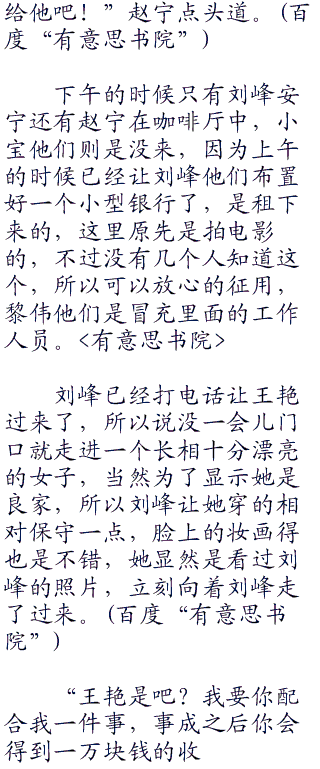 给他吧！”赵宁点头道。(百
度“有意思书院”)
下午的时候只有刘峰安
宁还有赵宁在咖啡厅中，小
宝他们则是没来，因为上午
的时候已经让刘峰他们布置
好一个小型银行了，是租下
来的，这里原先是拍电影
的，不过没有几个人知道这
个，所以可以放心的征用，
黎伟他们是冒充里面的工作
人员。<有意思书院>
刘峰已经打电话让王艳
过来了，所以说没一会儿门
口就走进一个长相十分漂亮
的女子，当然为了显示她是
良家，所以刘峰让她穿的相
对保守一点，脸上的妆画得
也是不错，她显然是看过刘
峰的照片，立刻向着刘峰走
了过来。(百度“有意思书
院”)
“王艳是吧？我要你配
合我一件事，事成之后你会
得到一万块钱的收